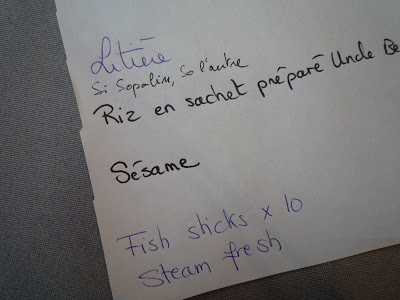 Litière
Si Sopalin, So l'autre
Riz en sachet préparé Uncle Be
Sésame
Fish sticks x 10
Steam fresh